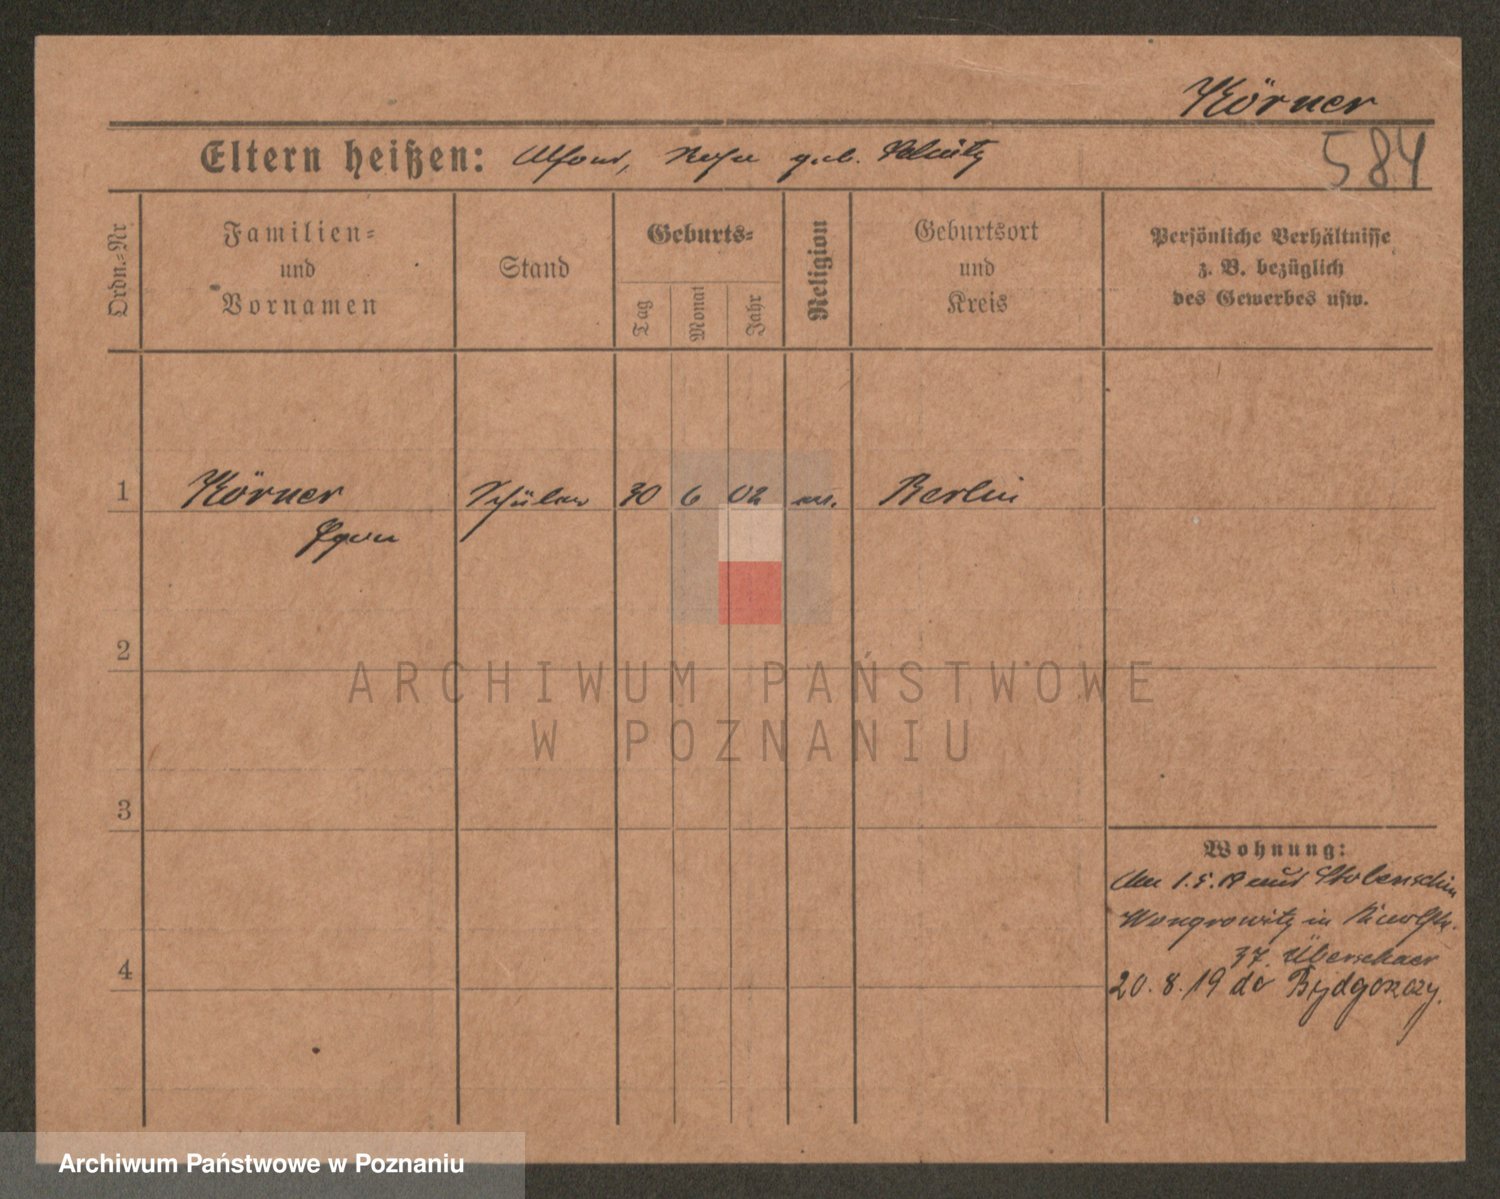 Körner
584
Eltern heißen: Alfons, geb.
Ordn.=Nr
Familien=
und
Vornamen
Stand
Geburts=
Tag
Monat
Jahr
Religion
Geburtsort
und
Kreis
Persönliche Verhältnisse
z. B. bezüglich
des Gewerbes usw.
1 Körner Schüler 30 6 02 ev. Berlin
Egon
2
ARCHIWUM PAŃSTWOWE
W POZNANIU
3
Wohnung:
Am 1.5.19 aus
Wongrowitz in
37. Überschaer
4
20.8.19 do Bydgoszczy.
Archiwum Państwowe w Poznaniu